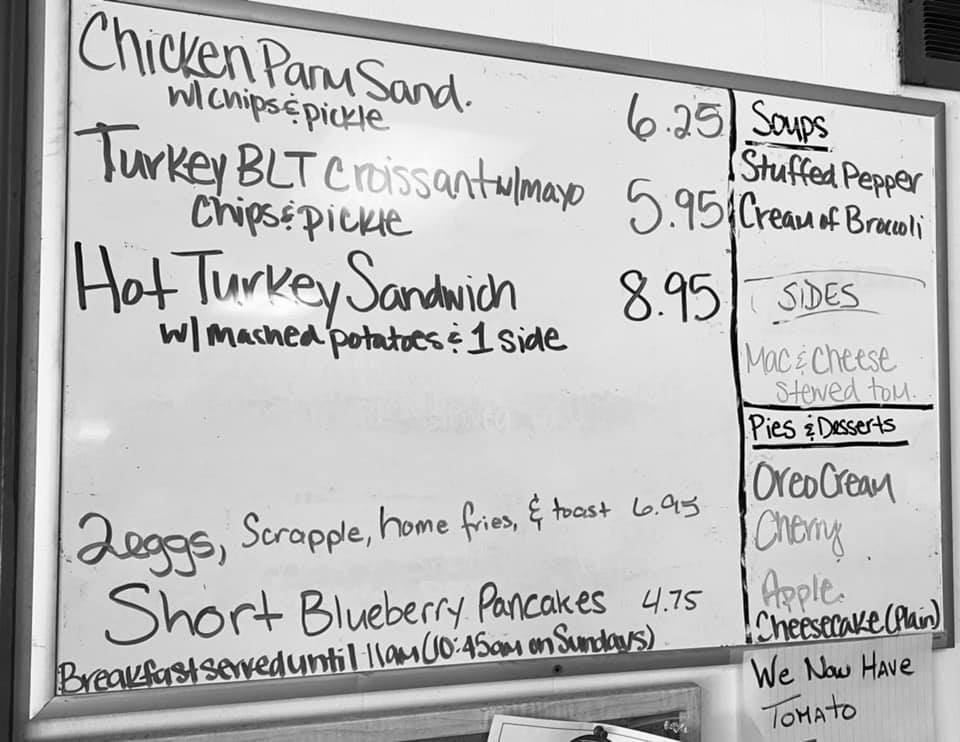 Chicken Parm Sand.
w/ chips & pickle 6.25
Turkey BLT Croissant w/mayo
chips & pickle 5.95
Hot Turkey Sandwich 8.95
w/ mashed potatoes & 1 side
2 eggs, Scrapple, home fries, & toast 6.95
Short Blueberry Pancakes 4.75
Breakfast served until 11am (10:45am on Sundays)
Soups
Stuffed Pepper
Cream of Broccoli
SIDES
Mac & Cheese
Stewed tom.
Pies & Desserts
Oreo Cream
Cherry
Apple
Cheesecake (Plain)
We Now Have
Tomato